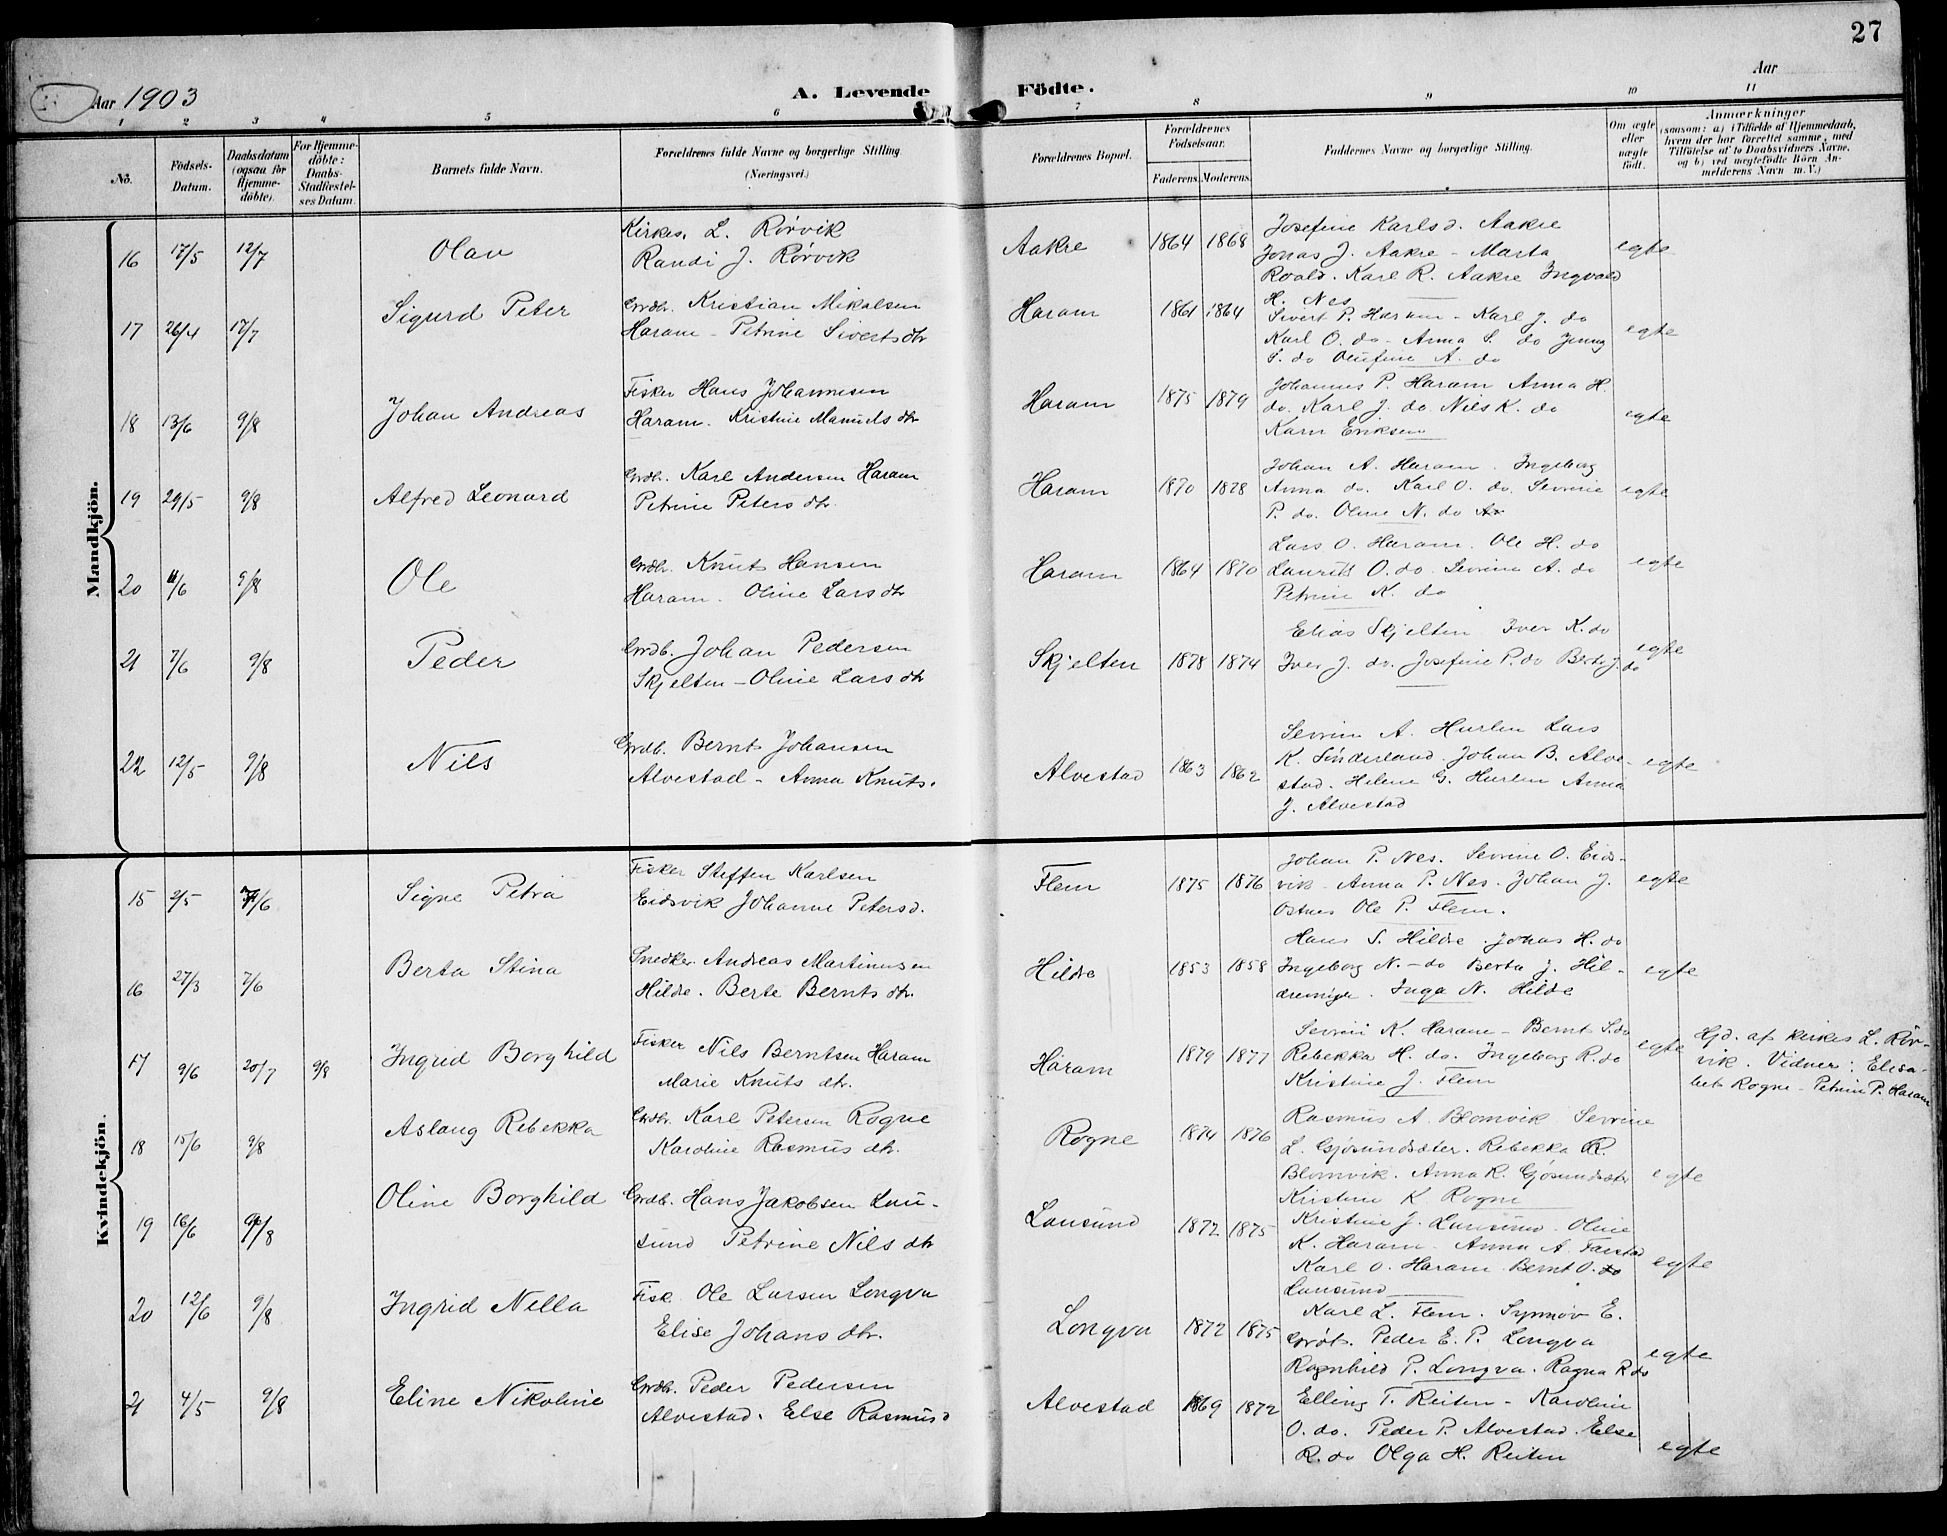 27
Aar 1903
A. Levende Födte.
Aar
1 2 3 4 5 6 7 8 9 10 11
No.
Födsels-Datum.
Daabsdatum (ogsaa for Hjemme-döbte).
For Hjemme-döbte: Daabs-Stadfæstel-ses Datum.
Barnets fulde Navn.
Forældrenes fulde Navne og borgerlige Stilling (Næringsvei.)
Forældrenes Bopæl.
Forældrenes Födselsaar.
Faderens. Moderens.
Faddernes Navne og borgerlige Stilling.
Om ægte eller uægte födt.
Anmærkninger
(saasom: a) i Tilfælde af Hjemmedaab, hvem der har forrettet samme, med Tilföielse af to Daabsvidners Navne, og b) ved uægtefödte Börn An-melderens Navn m.V.)
Mandkjön.
16 17/5 12/7 Olav
Kirkes. L. Rørvik
Randi J. Rørvik
Aakre 1864 1868
Josefine Karlsd. Aakre
Jonas J. Aakre - Marta
Roald. Karl R. Aakre Ingvald
H. Nes
egte
17 26/4 12/7 Sigurd Peter
Grdbr. Kristian Mikalsen
Haram - Petrine Siverts dtr
Haram 1861 1864
Sivert P. Haram - Karl J. do
Karl O. do - Anna S. do Jenny
S. do Olufine A. do
egte
18 13/6 9/8 Johan Andreas
Fisker Hans Johannesen
Haram. Kristine Manuels dtr
Haram 1875 1879
Johannes P. Haram Anna H.
do. Karl J. do. Nils K. do
Karn Eriksen
egte
19 29/5 9/8 Alfred Leonard
Grdbr. Karl Andersen Haram
Petrine Peters dtr.
Haram 1870 1878
Johan A. Haram. Ingeborg
Anna do. Karl O. do. Sevrine
P. do. Oline N. do
egte
20 11/6 9/8 Ole
Grdbr. Knut Hansen
Haram. Oline Lars dtr
Haram 1864 1870
Lars O. Haram. Ole H. do
Laurits O. do. Sevrine A. do
Petrine K. do
egte
21 7/6 9/8 Peder
Grdb. Johan Pedersen
Skjelten - Oline Lars dtr
Skjelten 1878 1874
Elias Skjelten Iver K. do
Iver J. do. Josefine P. do Berte J. do
egte
22 12/5 9/8 Nils
Grdb. Bernt Johansen
Alvestad - Anna Knuts.
Alvestad 1863 1862
Sevrin A. Hurlen Lars
K. Sønderland. Johan B. Alve-
stad. Helene G. Hurlen Anna
J. Alvestad
egte
Kvindekjön.
15 2/5 7/6 Signe Petra
Fisker Steffen Karlsen
Eidsvik Johanne Petersd.
Flem 1875 1876
Johan P. Nes. Sevrine O. Eids-
vik - Anna P. Nes. Johan J.
Ostnes Ole P. Flem.
egte
16 27/3 7/6 Berta Stina
Snedker Andreas Martinusen
Hildre. Berte Bernts dtr.
Hildre 1853 1858
Hans S. Hildre. Johas H. do
Ingeborg N. - do Berta J. Hil-
dremyr. Inga N. Hildre
egte
17 9/6 20/7 9/8 Ingrid Borghild
Fisker Nils Berntsen Haram
Marie Knuts dtr.
Haram 1879 1877
Sevrin K. Haram - Bernt S. do
Rebekka H. do. Ingeborg R. do
Kristine J. Flem
egte
Hjd. af kirkes L. Rør-
vik. Vidner: Elisa-
bet Rogne - Petrine P. Haram
18 15/6 9/8 Aslaug Rebekka
Grdbr. Karl Petersen Rogne
Karoline Rasmus dtr.
Rogne 1874 1876
Rasmus A. Blomvik Sevrine
L. Gjøsundsæter. Rebekka R.
Blomvik. Anna K. Gjøsundsæter
Kristine K. Rogne
egte
19 16/6 9/8 Oline Borghild
Grdb. Hans Jakobsen Lau-
sund Petrine Nils dtr
Lausund 1872 1875
Kristine J. Lausund. Oline
K. Haram. Anna A. Farstad
Karl O. Haram Bernt O. do
Lausund
egte
20 12/6 9/8 Ingrid Nella
Fisk. Ole Larsen Longva
Elise Johans dtr.
Longva 1872 1875
Karl L. Flem. Synnøv E.
Grøt. Peder E. P. Longva
Ragnhild P. Longva. Ragna R do
egte
21 4/5 9/8 Eline Nikoline
Grdb. Peder Pedersen
Alvestad. Else Rasmusd
Alvestad 1869 1872
Elling T. Reiten - Karoline
O. do. Peder P. Alvestad. Else
R. do Olga H. Reiten
egte